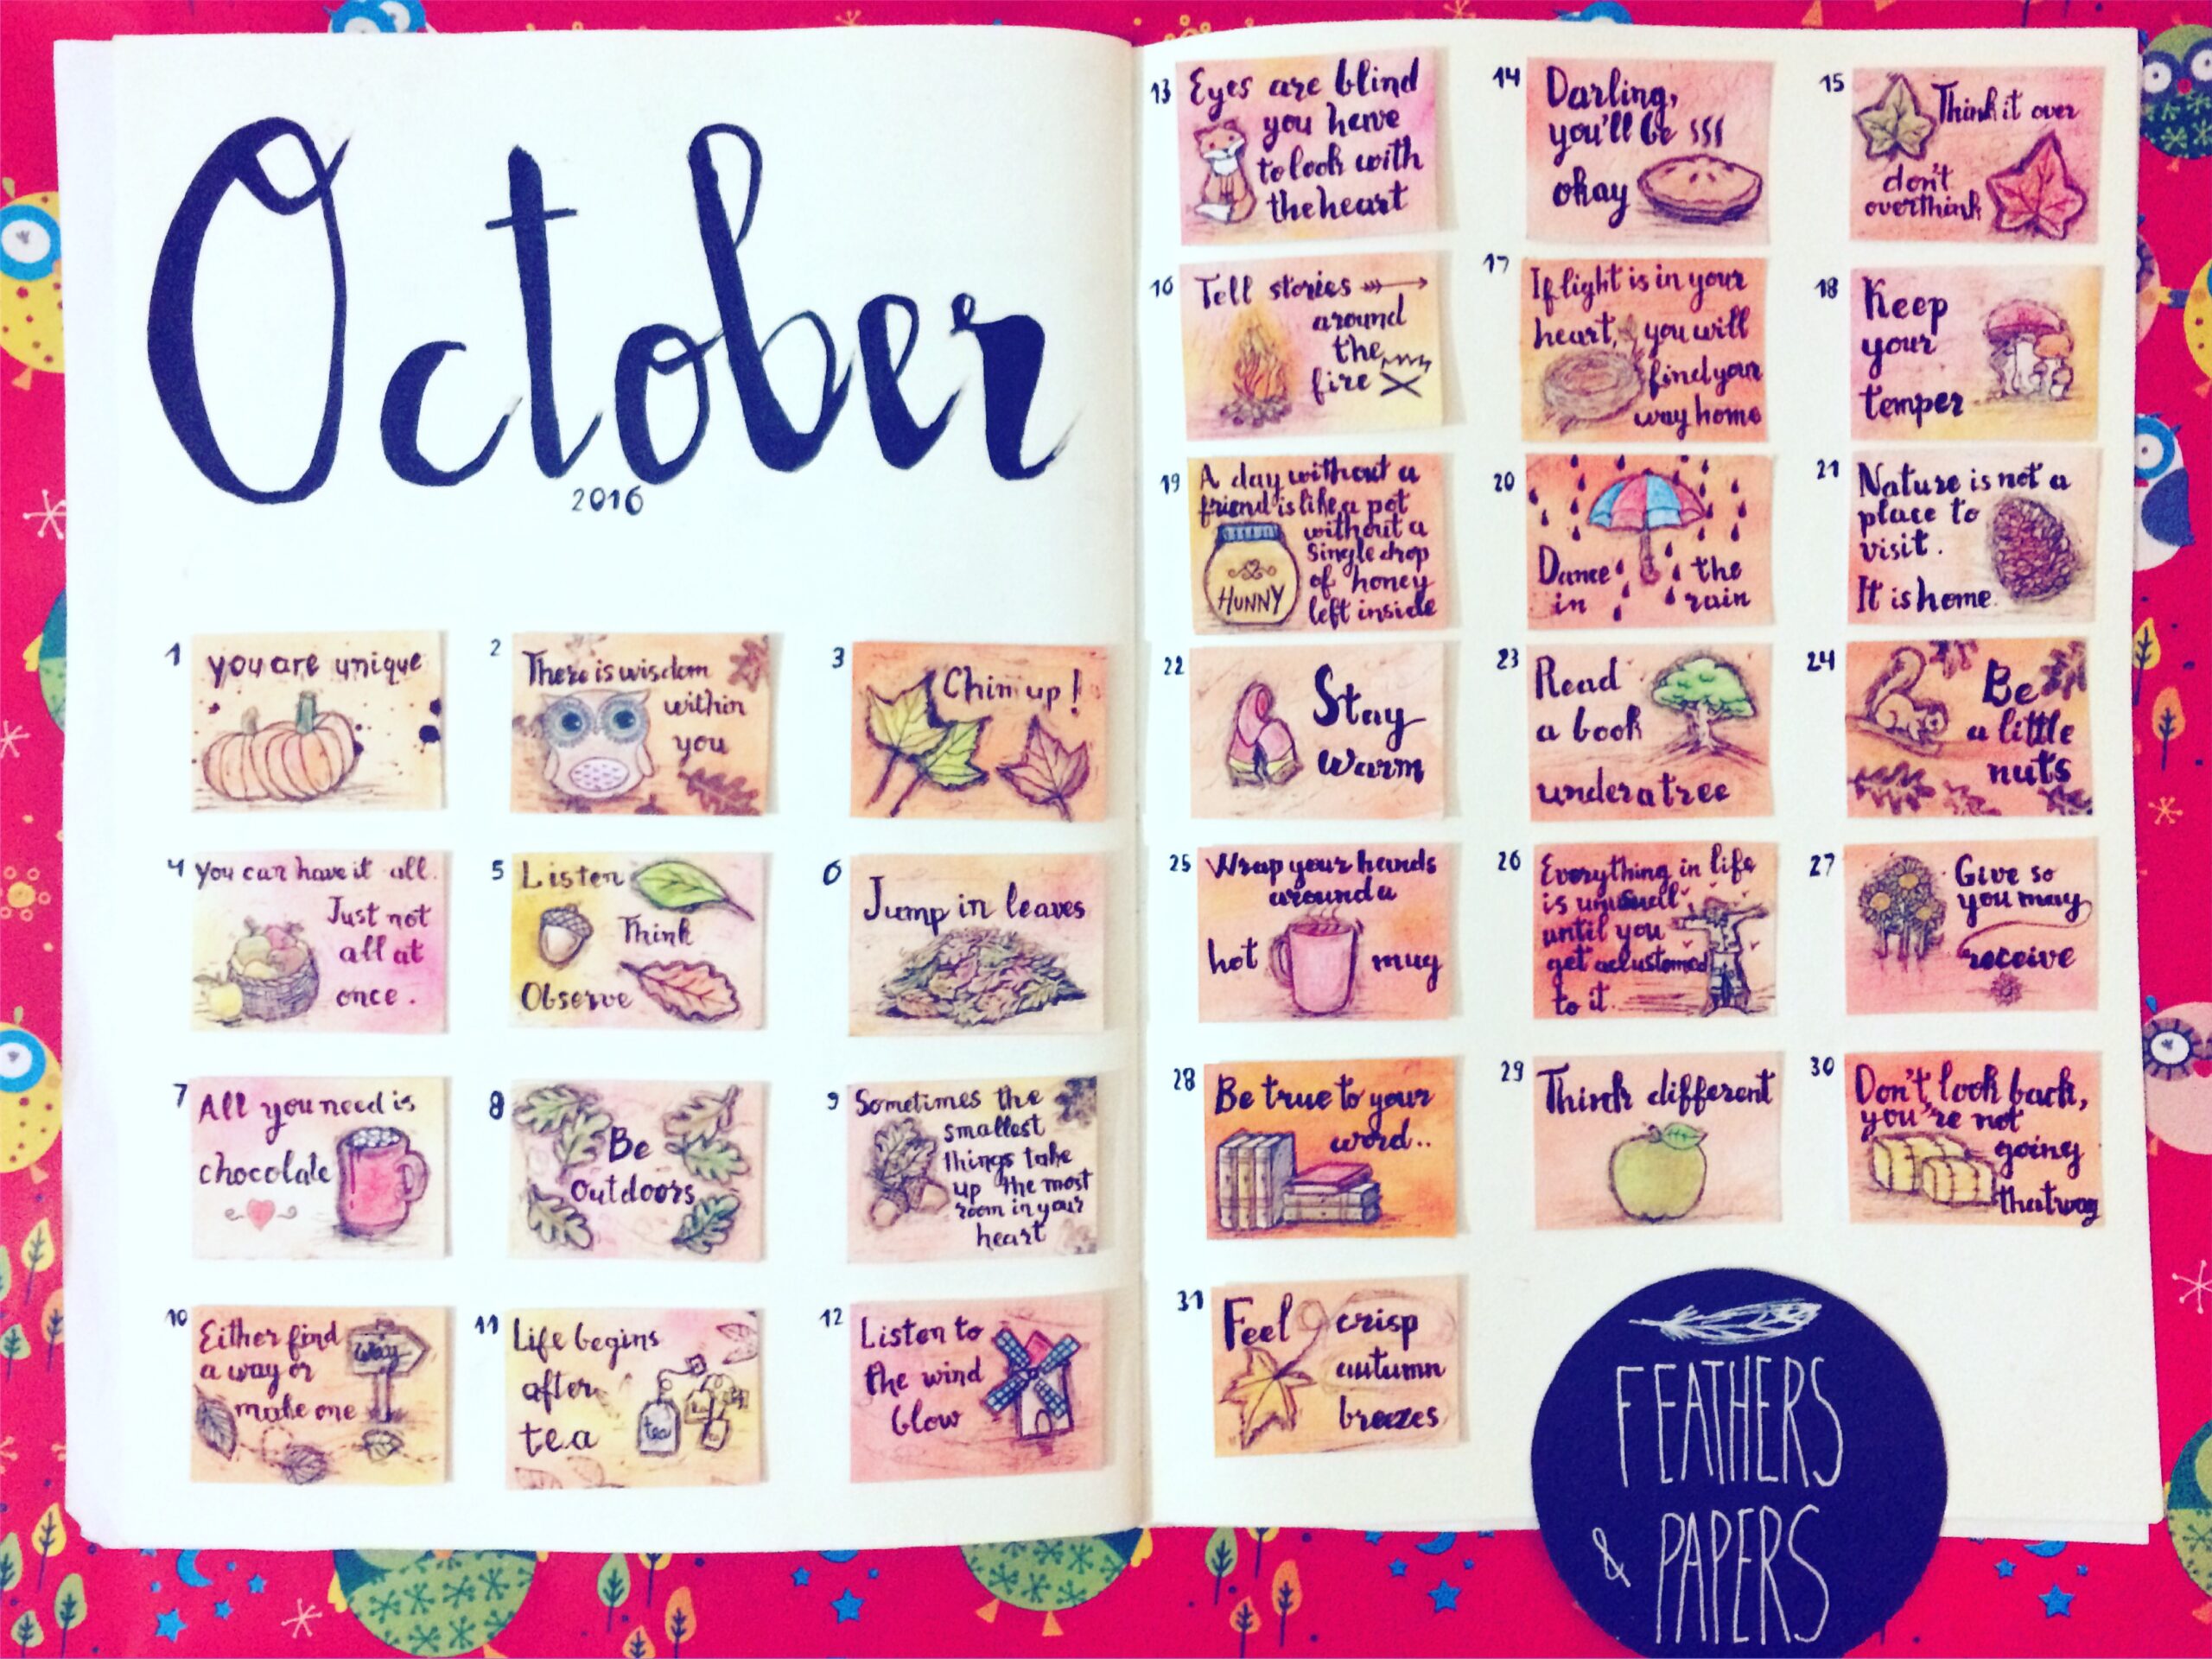 October
2016
1
you are unique
2
There is wisdom
within
you
3
Chin up!
4
You can have it all.
Just not
all at
once.
5
Listen
Think
Observe
6
Jump in leaves
7
All you need is
chocolate
8
Be
Outdoors
9
Sometimes the
smallest
things take
up the most
room in your
heart
10
Either find
a way or
make one
Way
11
Life begins
after
tea
tea
12
Listen to
the wind
blow
13
Eyes are blind
you have
to look with
the heart
14
Darling,
you'll be
okay
15
Think it over
don't
overthink
16
Tell stories
around
the
fire
17
If light is in your
heart, you will
find your
way home
18
Keep
your
temper
19
A day without a
friend is like a pot
without a
single drop
of honey
left inside
HUNNY
20
Dance the
in rain
21
Nature is not a
place to
visit.
It is home.
22
Stay
warm
23
Read
a book
under a tree
24
Be
a little
nuts
25
Wrap your hands
around a
hot mug
26
Everything in life
is
until you
get acustomed
to it.
27
Give so
you may
receive
28
Be true to your
word..
29
Think different
30
Don't look back,
you're not
going
that way
31
Feel crisp
autumn
breezes
FEATHERS
& PAPERS